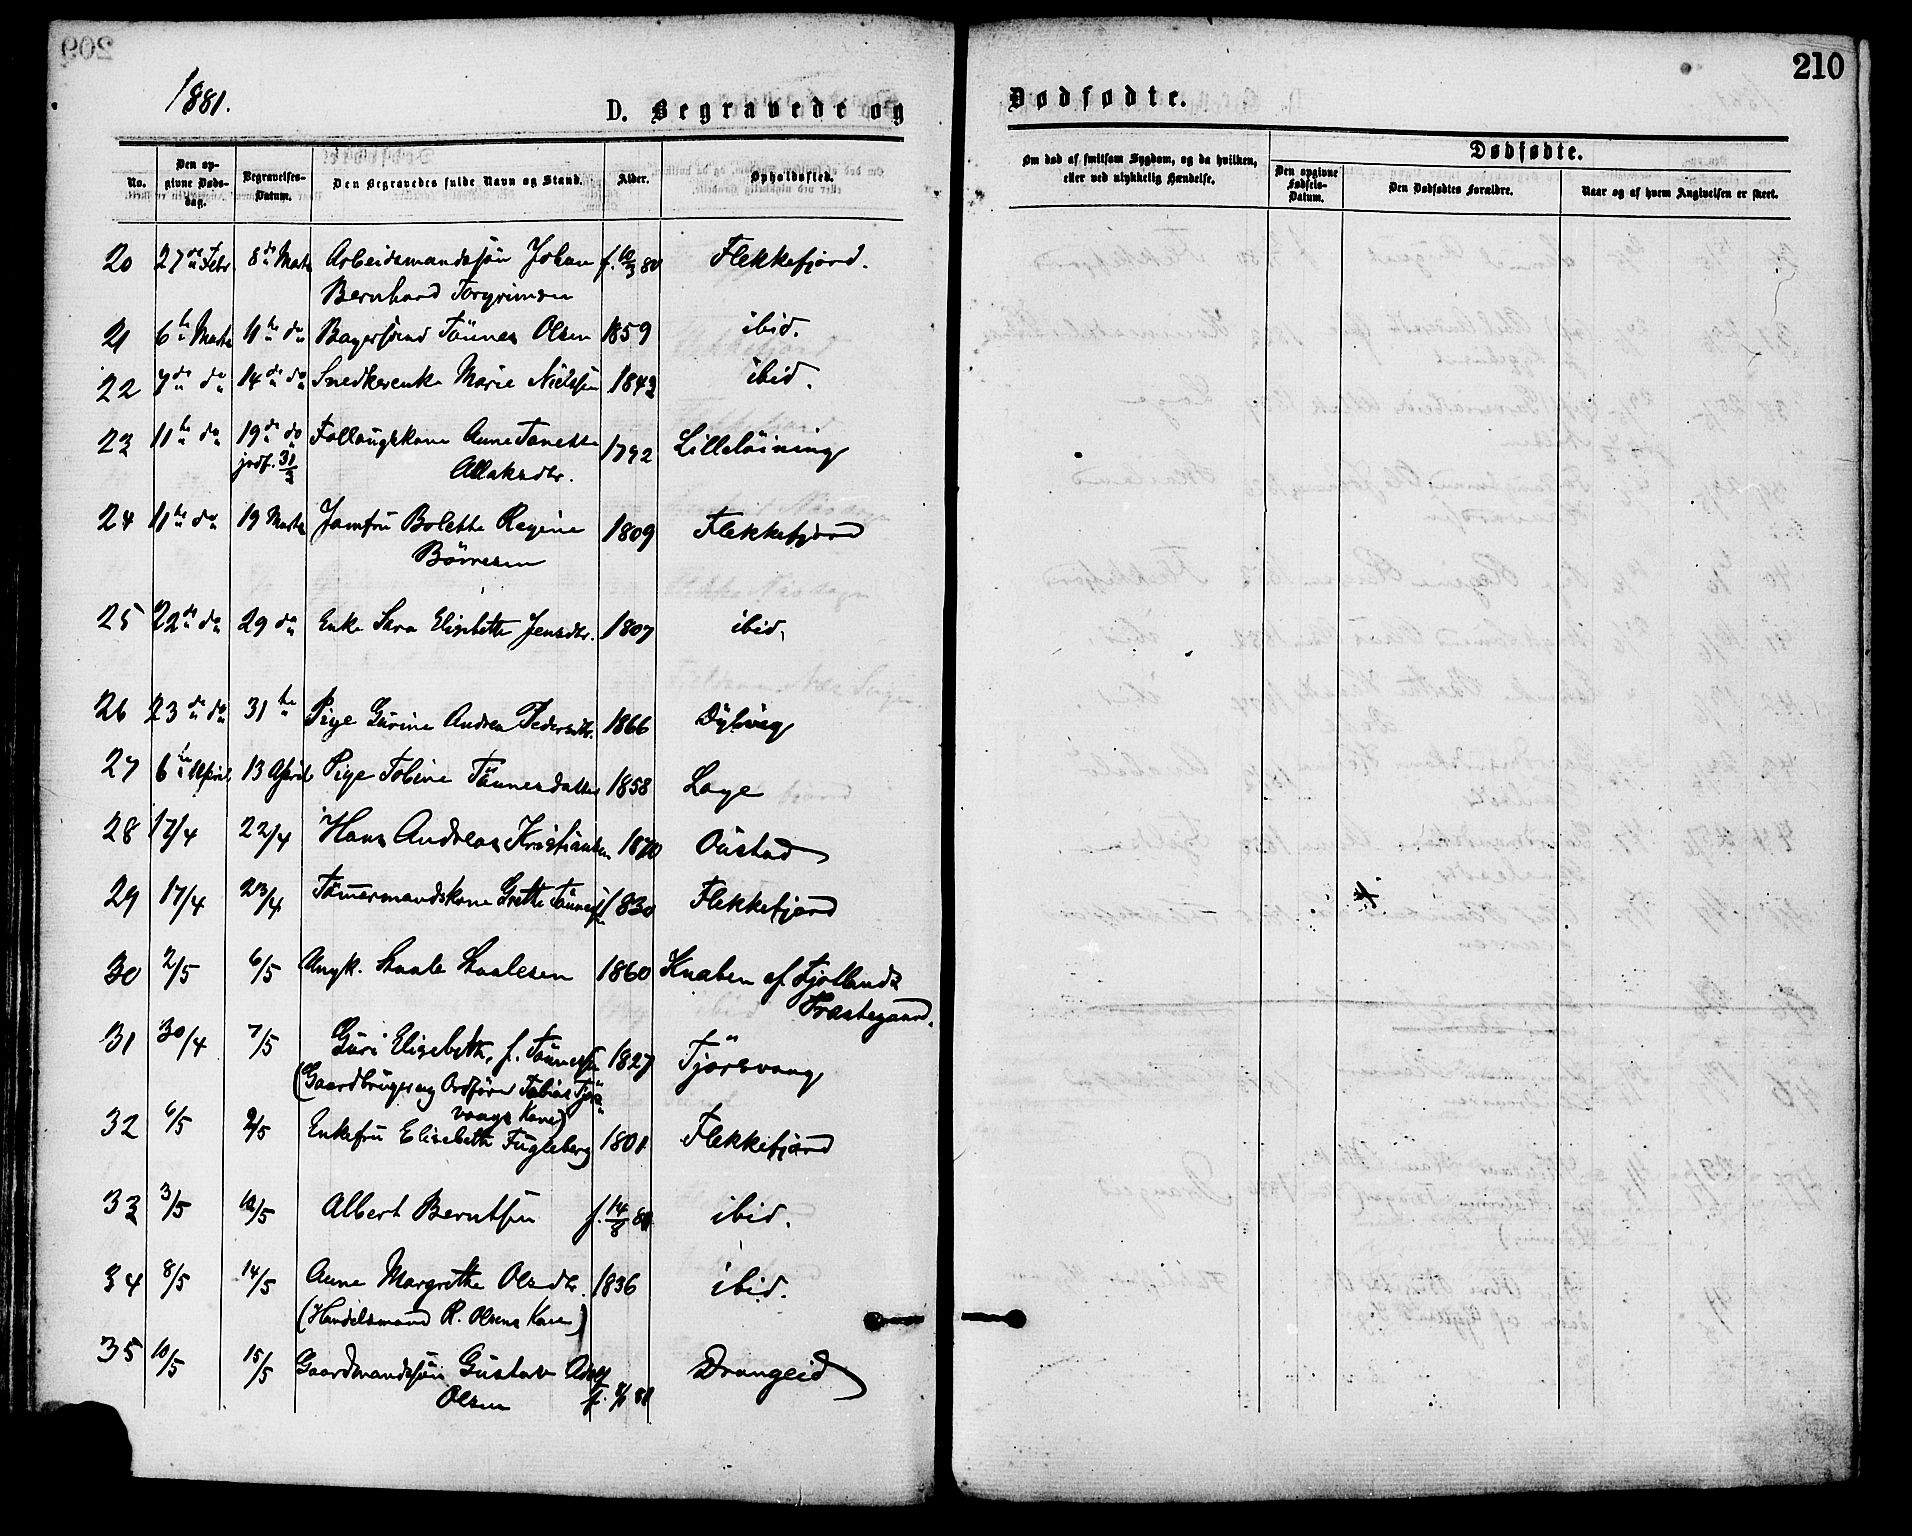 1881.
D. Begravede og
Dødfødte.
210
No.
Den opgivne Døds-dag.
Begravelses-Datum.
Den Begravedes fulde Navn og Stand.
Alder.
Opholdssted.
Om død af smitsom Sygdom, og da hvilken, eller ved ulykkelig Hændelse.
Dødfødte.
Den opgivne Fødsels-Datum.
Den Dødfødtes Forældre.
Naar og af hvem Angivelsen er skeet.
20 27de Febr. 8de Marts Arbeidsmandssøn Johan f. 10/3 80 Flekkefjord.
Bernhard Torgrimsen
21 6te Marts 11te do Tønnes Olsen 1859 ibid.
22 7de do 14de do Snedkerenke Marie Nielsen 1842 ibid.
23 11te do 19de do Follaugskone Anne Tonette 1792 Lilleløining
jordf. 31/3 Allaksdtr.
24 11te do 19 Marts Jomfru Bolette Regine 1809 Flekkefjord
Børresen
25 22de do 29 do Enke Sara Elisbette Jensdtr. 1807 ibid.
26 23de do 31te Pige Gurine Andrea Pedersdtr. 1866 Dybvig
27 6te April 13 April Pige Tobine Tönnesdatter 1858 Loge
28 17/4 22/4 Hans Andreas Kristiansen 1870 Oustad
29 17/4 23/4 Tömmermandskone Grethe Tönnes 1830 Flekkefjord
30 2/5 6/5 Ungk. Staale Staalesen 1860 Knaben af Fjotlands
Præstegaard.
31 30/4 7/5 Guri Elisebeth, f. Tönnes 1827 Tjörsvaag
(Gaardbruger og Ordförer Tobias Tjörs-
vaags Kone)
32 6/5 9/5 Enkefru Elisebeth Fugleberg 1801 Flekkefjord
33 3/5 10/5 Albert Berntsen f. 14/8 80 ibid.
34 8/5 14/5 Anne Margrethe Olsdtr. 1836 ibid.
(Handelsmand R. Olsens Kone)
35 10/5 15/5 Gaardmandssøn Gustav Adolf Drangeid
Olsen